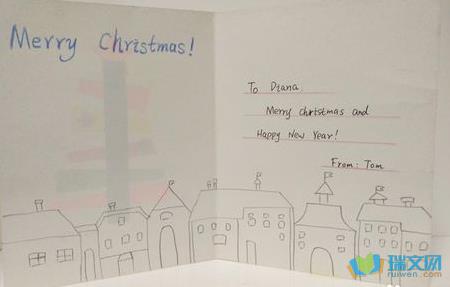 Merry Christmas!
To Diana
Merry christmas and
Happy New Year!
From: Tom
瑞文网